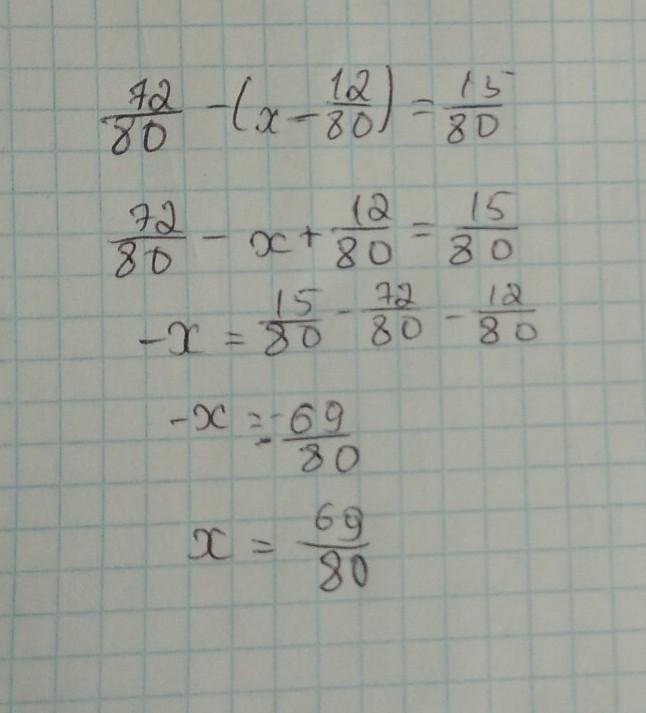 72/80 - (x - 12/80) = 15/80
72/80 - x + 12/80 = 15/80
-x = 15/80 - 72/80 - 12/80
-x = -69/80
x = 69/80